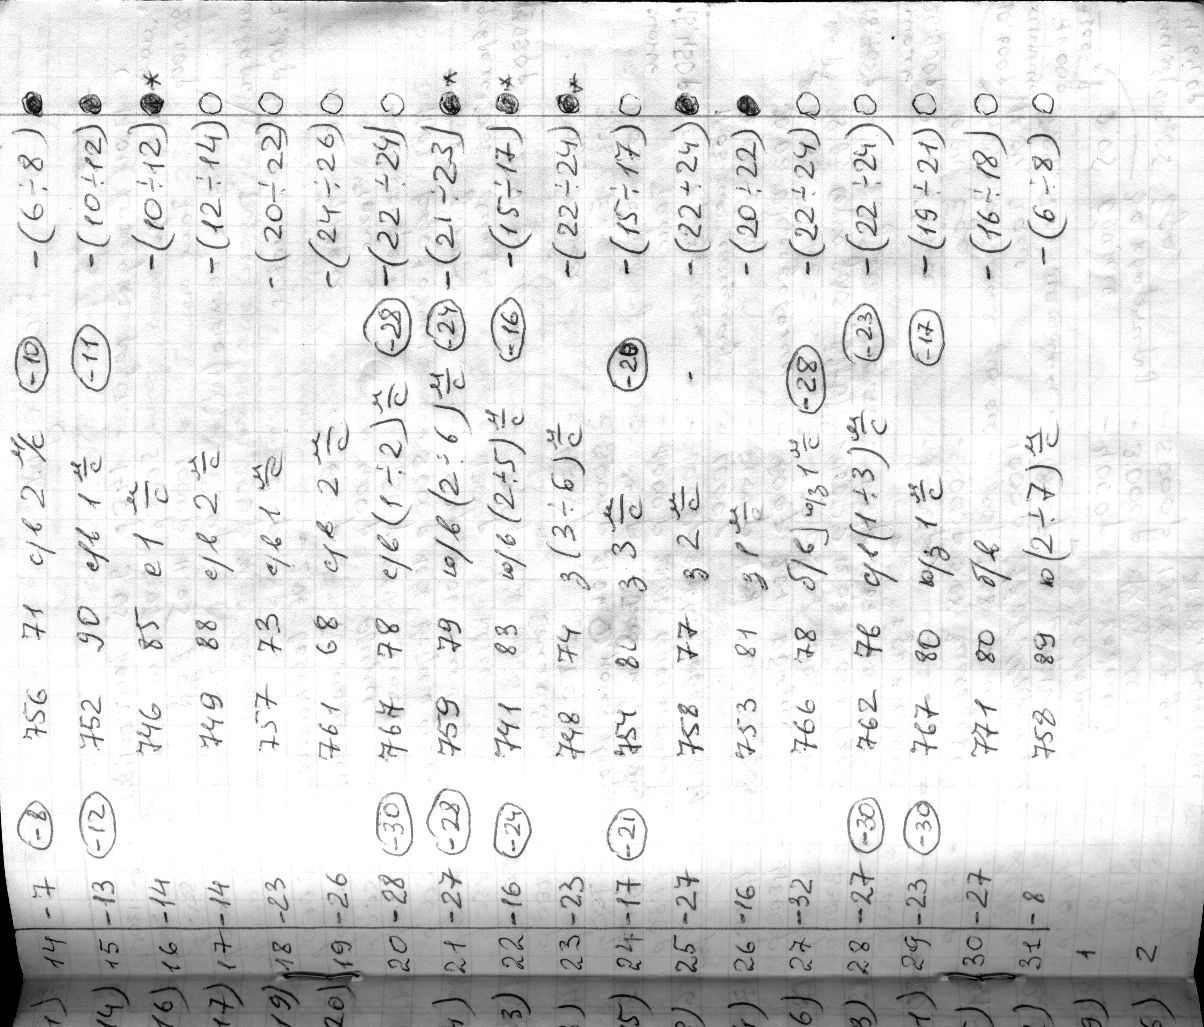 14 -7 (-8) 756 71 с/в 2 м/с (-10) -(6÷8) ●
15 -13 (-12) 752 90 с/в 1 м/с (-11) -(10÷12) ●
16 -14 746 85 с 1 м/с -(10÷12) ●*
17 -14 749 88 с/в 2 м/с -(12÷14) ○
18 -23 757 73 с/в 1 м/с -(20÷22) ○
19 -26 761 68 с/в 2 м/с -(24÷26) ○
20 -28 (-30) 767 78 с/в (1÷2) м/с (-28) -(22÷24) ○
21 -27 (-28) 759 79 ю/в (2÷6) м/с (-24) -(21÷23) ●*
22 -16 (-24) 741 83 ю/в (2÷5) м/с (-16) -(15÷17) ●*
23 -23 748 74 з (3÷6) м/с -(22÷24) ●*
24 -17 (-21) 754 80 з 3 м/с -(15÷17) ○
25 -27 758 77 з 2 м/с -(22÷24) ●
26 -16 753 81 з 1 м/с -(20÷22) ●
27 -32 766 78 б/в ю/з 1 м/с (-28) -(22÷24) ○
28 -27 (-30) 762 76 с/в (1÷3) м/с (-23) -(22÷24) ○
29 -23 (-30) 767 80 ю/з 1 м/с (-17) -(19÷21) ○
30 -27 771 80 б/в -(16÷18) ○
31 -8 758 89 ю (2÷7) м/с -(6÷8) ○
1
2